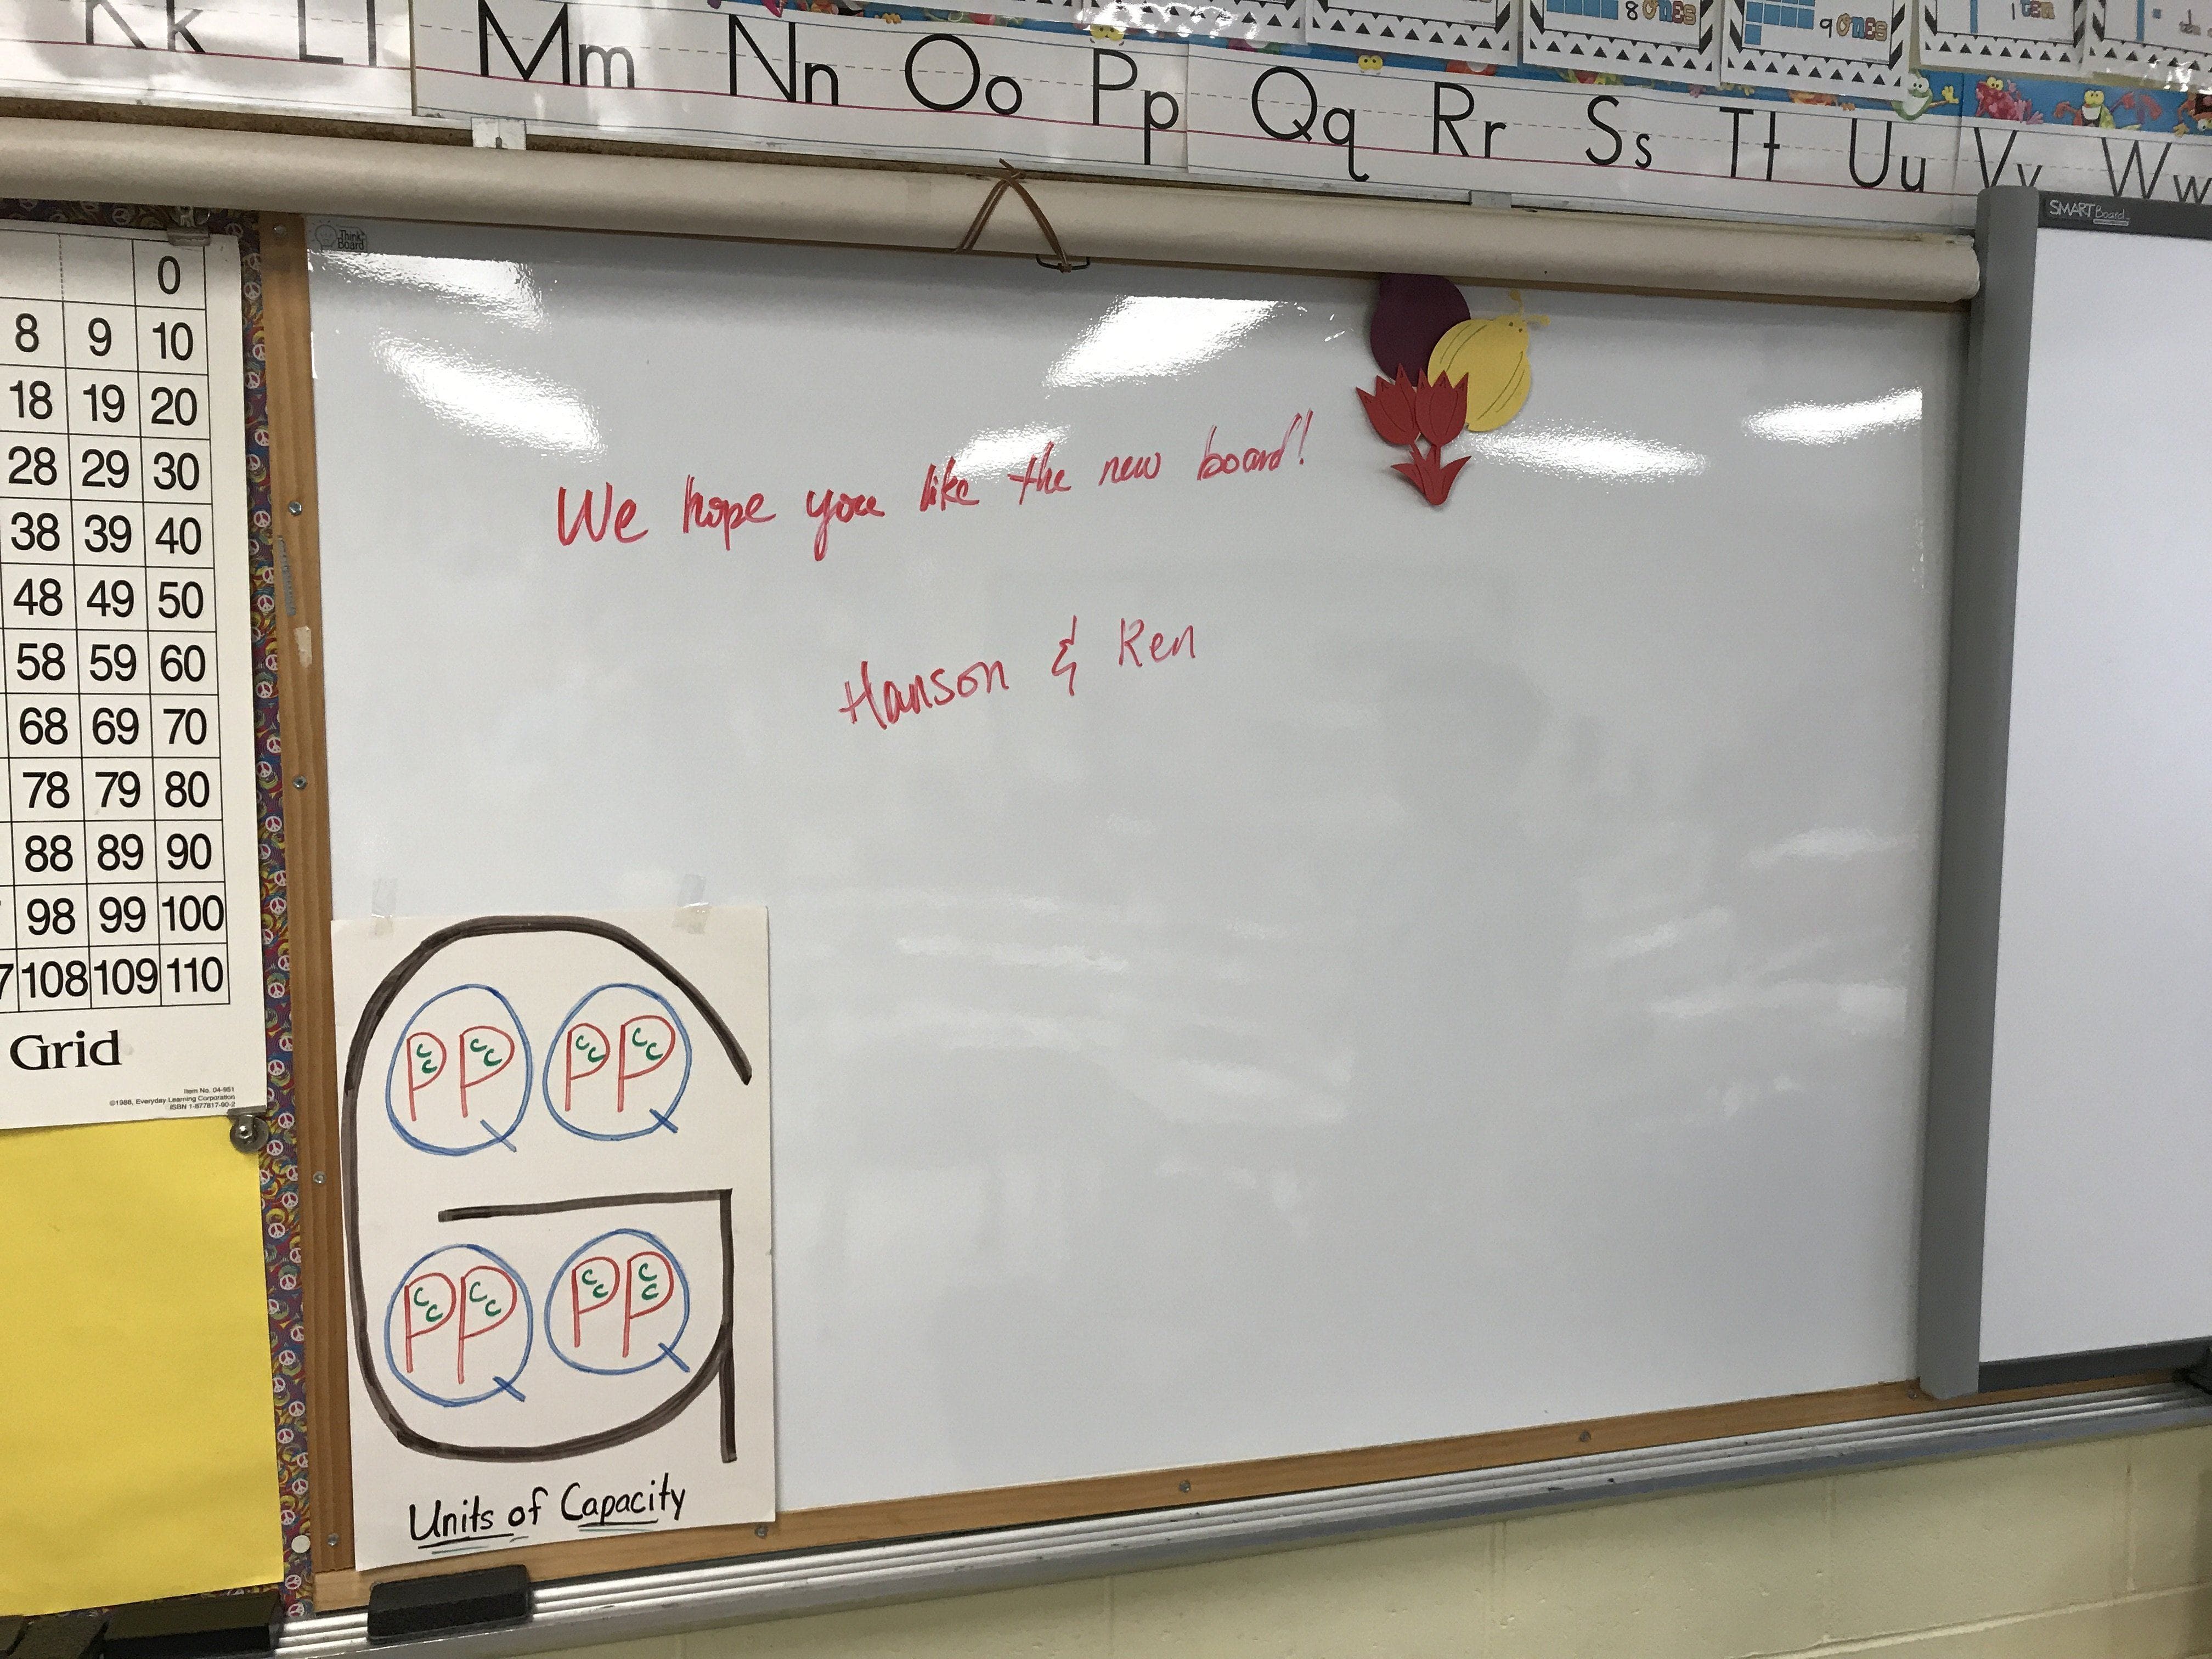 Kk Ll Mm Nn Oo Pp Qq Rr Ss Tt Uu Vv Ww
8 ONES
9 ONES
1 TEN
SMART Board
Think Board
0
8 9 10
18 19 20
28 29 30
38 39 40
48 49 50
58 59 60
68 69 70
78 79 80
88 89 90
98 99 100
7 108 109 110
Grid
Item No. 04-951
©1988, Everyday Learning Corporation
ISBN 1-877817-90-2
We hope you like the new board!
Hanson & Ren
G
Q Q
P P P P
C C C C C C C C
Q Q
P P P P
C C C C C C C C
Units of Capacity